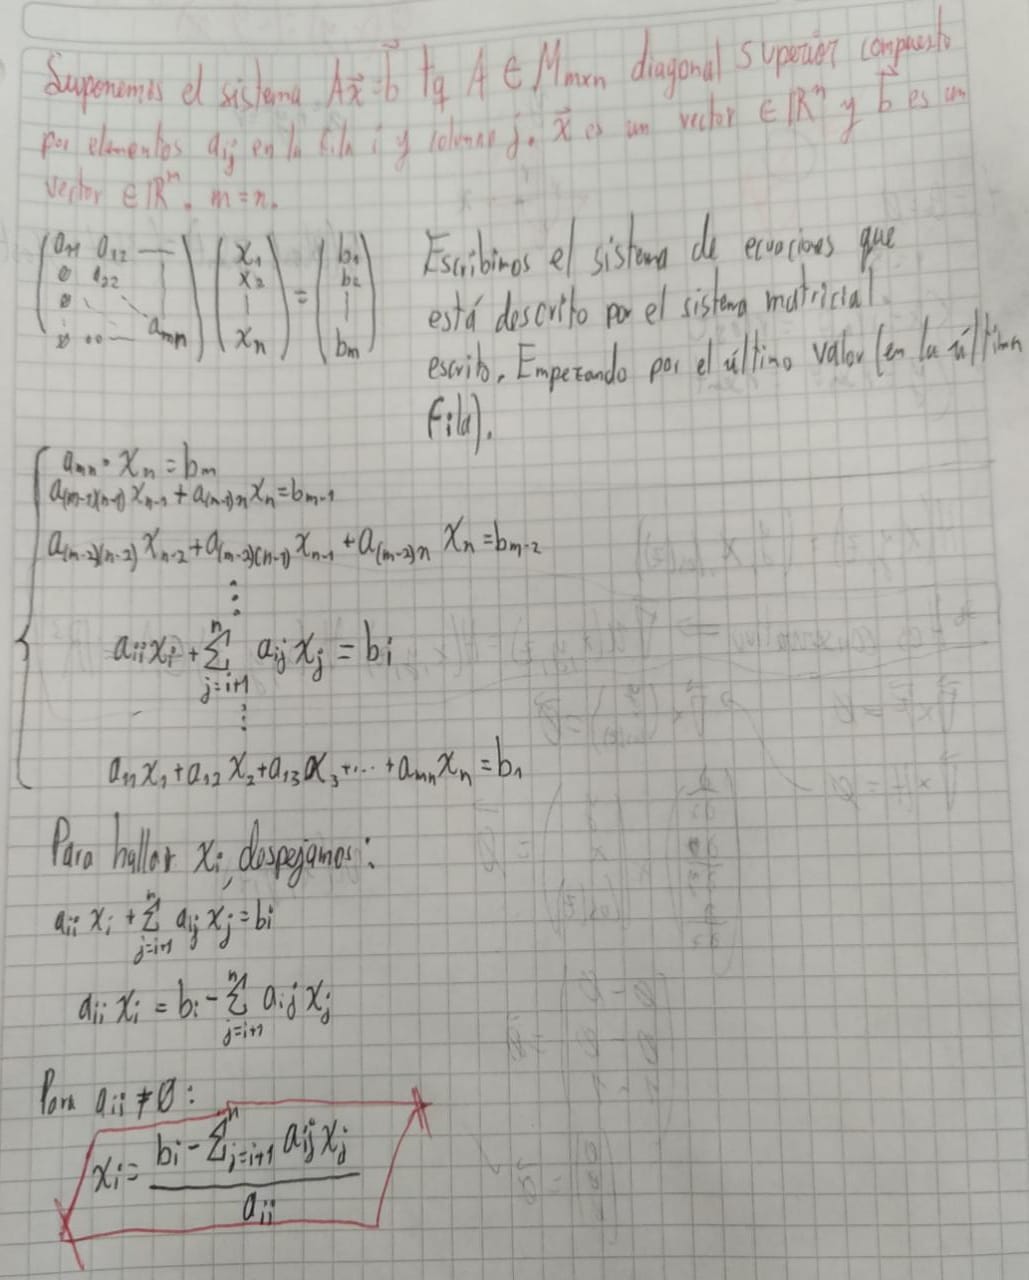 Suponemos el sistema A\vec{x}=\vec{b} tq A ∈ M_{mxn} diagonal superior compuesto
por elementos a_{ij} en la fila i y columna j. \vec{x} es un vector ∈ ℝ^n y \vec{b} es un
vector ∈ ℝ^m. m=n.
Escribimos el sistema de ecuaciones que
está descrito por el sistema matricial
escrito. Empezando por el último valor (en la última
fila).
a_{11} a_{12} — x_1 b_1
0 a_{22} x_2 = b_2
0
0 ... — a_{mn} x_n b_m
a_{mn} · x_n = b_m
a_{(m-1)(n-1)} x_{n-1} + a_{(m-1)n} x_n = b_{m-1}
a_{(m-2)(n-2)} x_{n-2} + a_{(m-2)(n-1)} x_{n-1} + a_{(m-2)n} x_n = b_{m-2}
⋮
a_{ii} x_i + Σ_{j=i+1}^{n} a_{ij} x_j = b_i
⋮
a_{11} x_1 + a_{12} x_2 + a_{13} x_3 + ... + a_{mn} x_n = b_1
Para hallar x_i, despejamos:
a_{ii} x_i + Σ_{j=i+1}^{n} a_{ij} x_j = b_i
a_{ii} x_i = b_i - Σ_{j=i+1}^{n} a_{ij} x_j
Para a_{ii} ≠ 0:
x_i = \frac{b_i - Σ_{j=i+1}^{n} a_{ij} x_j}{a_{ii}}